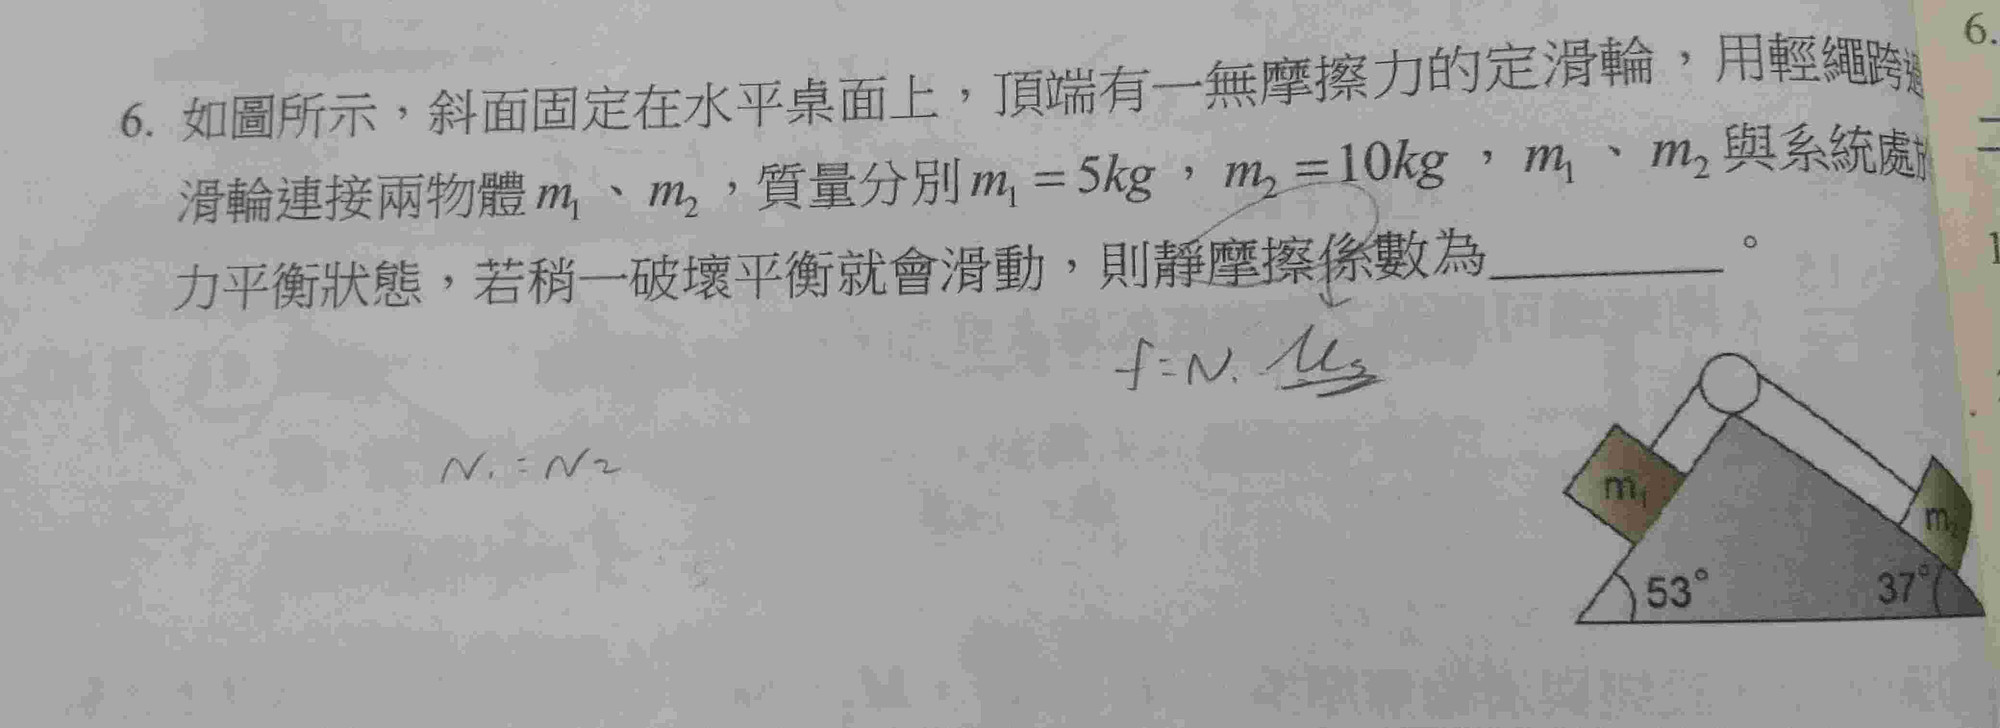 6. 如圖所示，斜面固定在水平桌面上，頂端有一無摩擦力的定滑輪，用輕繩跨過
滑輪連接兩物體 m₁、m₂，質量分別 m₁ = 5kg，m₂ = 10kg，m₁、m₂ 與系統處於
力平衡狀態，若稍一破壞平衡就會滑動，則靜摩擦係數為________。
f = N. μs
N₁ = N2
m₁
m₂
53°
37°
6.
1